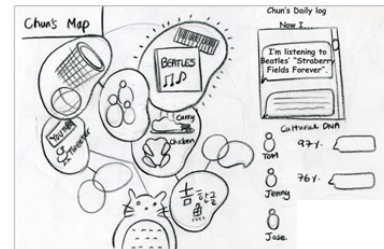 Chun's Map
BEATLES
Curry
Chicken
YOUTUBE
THEATER
Chun's Daily log
Now I...
I'm listening to
Beatles' "Straberry
Fields Forever".
Cultural DNA
Tom
97%
Jenny
76%
Jose